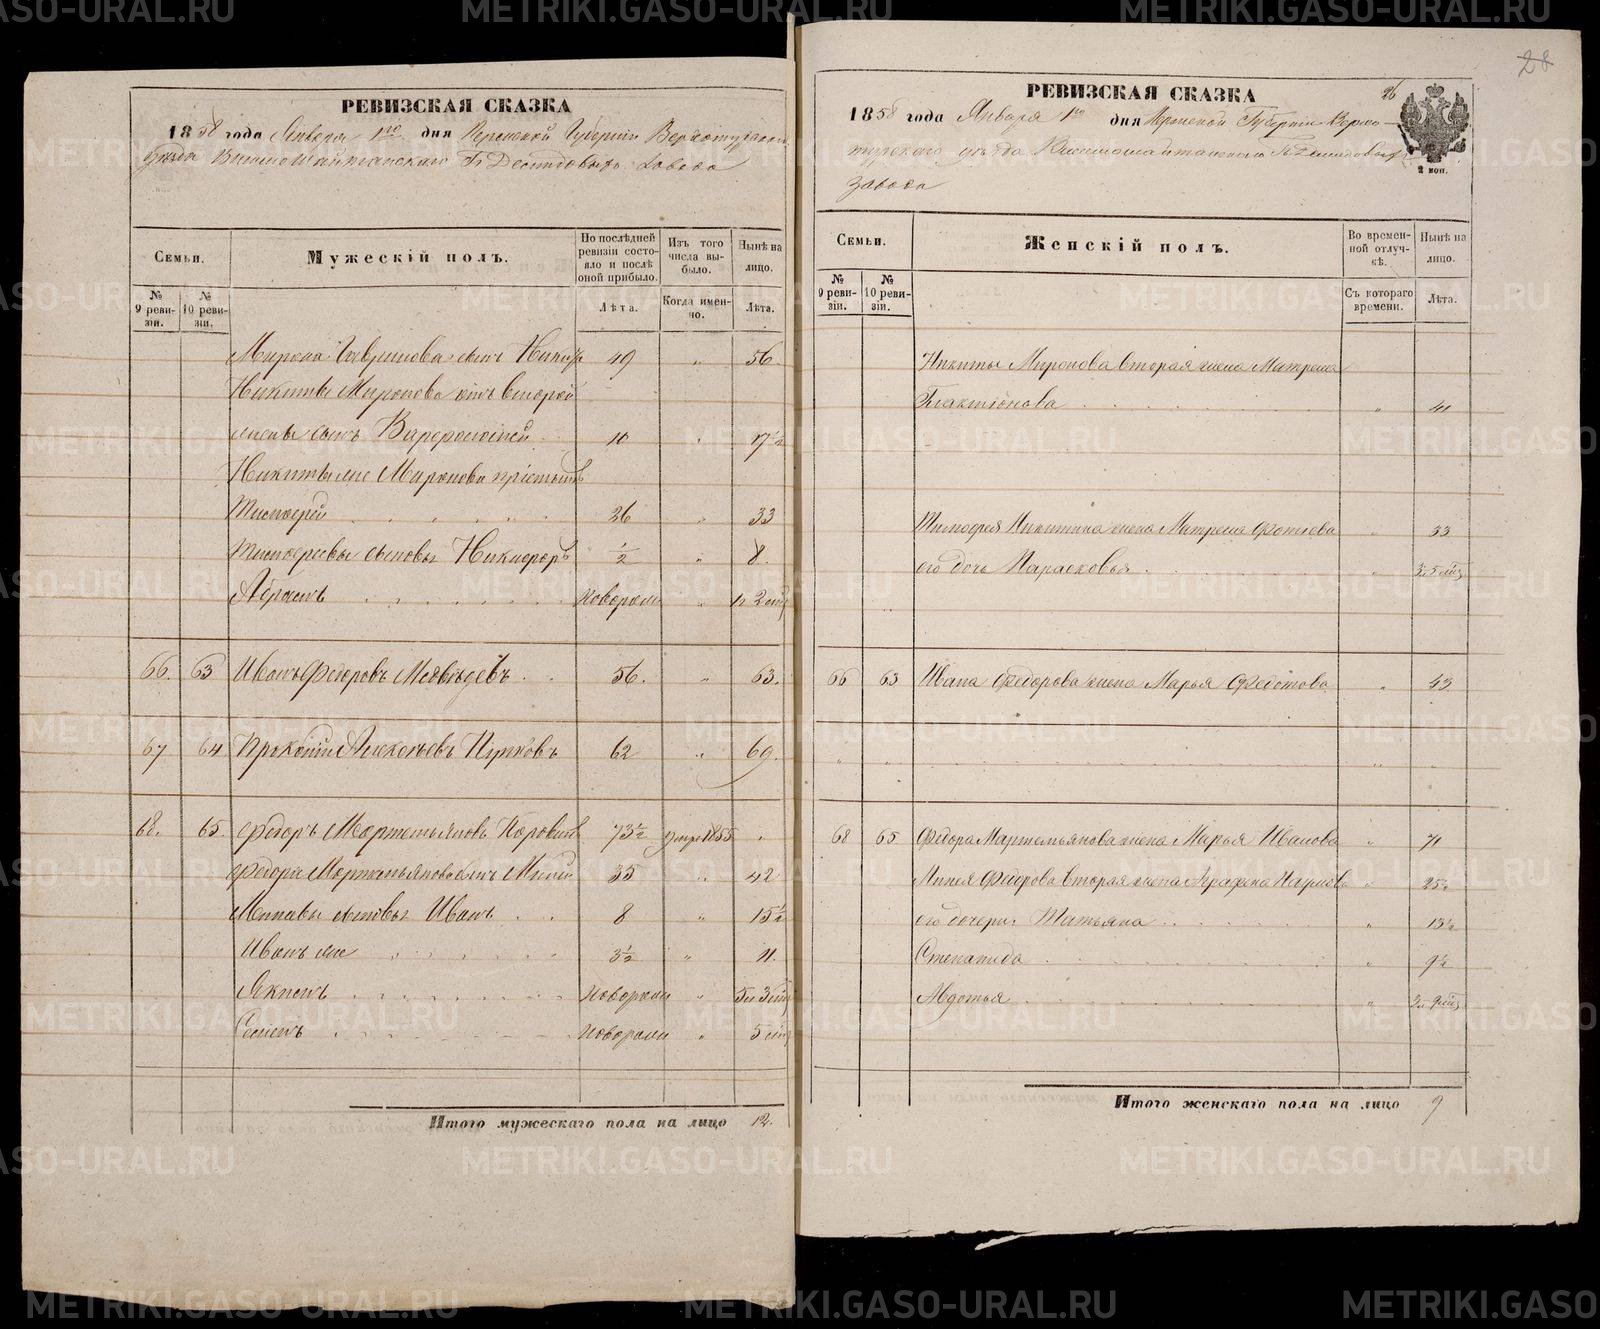 РЕВИЗСКАЯ СКАЗКА
1858 года Января 1го дня Пермской Губернии Верхотурскаго
уѣзда Висимошайтанскаго Гг Демидовыхъ завода
Семьи.
Мужескій полъ.
По послѣдней ревизіи состояло и послѣ оной прибыло.
Изъ того числа выбыло.
Нынѣ на лицо.
№ 9 ревизіи.
№ 10 ревизіи.
Лѣта.
Когда именно.
Лѣта.
Мирона сынъ 49 " 56
Никиты Миронова отъ второй
жены сынъ 10 " 17½
Никиты же Миронова
Тимофей 26 " 33
Тимофеевы сыновья Никифоръ ½ " 8
Абрамъ новорожд "
66. 63 Иванъ Федоровъ Медвѣдевъ 56. " 63.
67 64 Прокопій Алексѣевъ 62 " 69.
68. 65. Федоръ Мартемьяновъ 73½ умре 1855 "
Федора Мартемьянова сынъ 35 " 42
сыновья Иванъ 8 " 15½
Иванъ же 3½ " 11.
Якимъ новорожд "
новорожд "
Итого мужескаго пола на лицо 12.
28
26
РЕВИЗСКАЯ СКАЗКА
1858 года Января 1го дня Пермской Губерніи Верхо-
турскаго уѣзда Висимошайтанскаго Гг Демидовыхъ
завода
2 коп.
Семьи.
Женскій полъ.
Во временной отлучкѣ.
Нынѣ на лицо.
№ 9 ревизіи.
№ 10 ревизіи.
Съ котораго времени.
Лѣта.
Никиты Миронова вторая жена Матрена
Галактіонова " 41
Тимофея Никитина жена Матрена Фотіева " 33
его дочь Парасковья "
66 63 Ивана Федорова жена Марья Федотова " 43
" " " "
68 65 Федора Мартемьянова жена Марья Иванова " 71
Федорова вторая жена Аграфена "
его дочери: Татьяна " 13½
Степанида " 9½
Авдотья "
Итого женскаго пола на лицо 9
METRIKI.GASO-URAL.RU